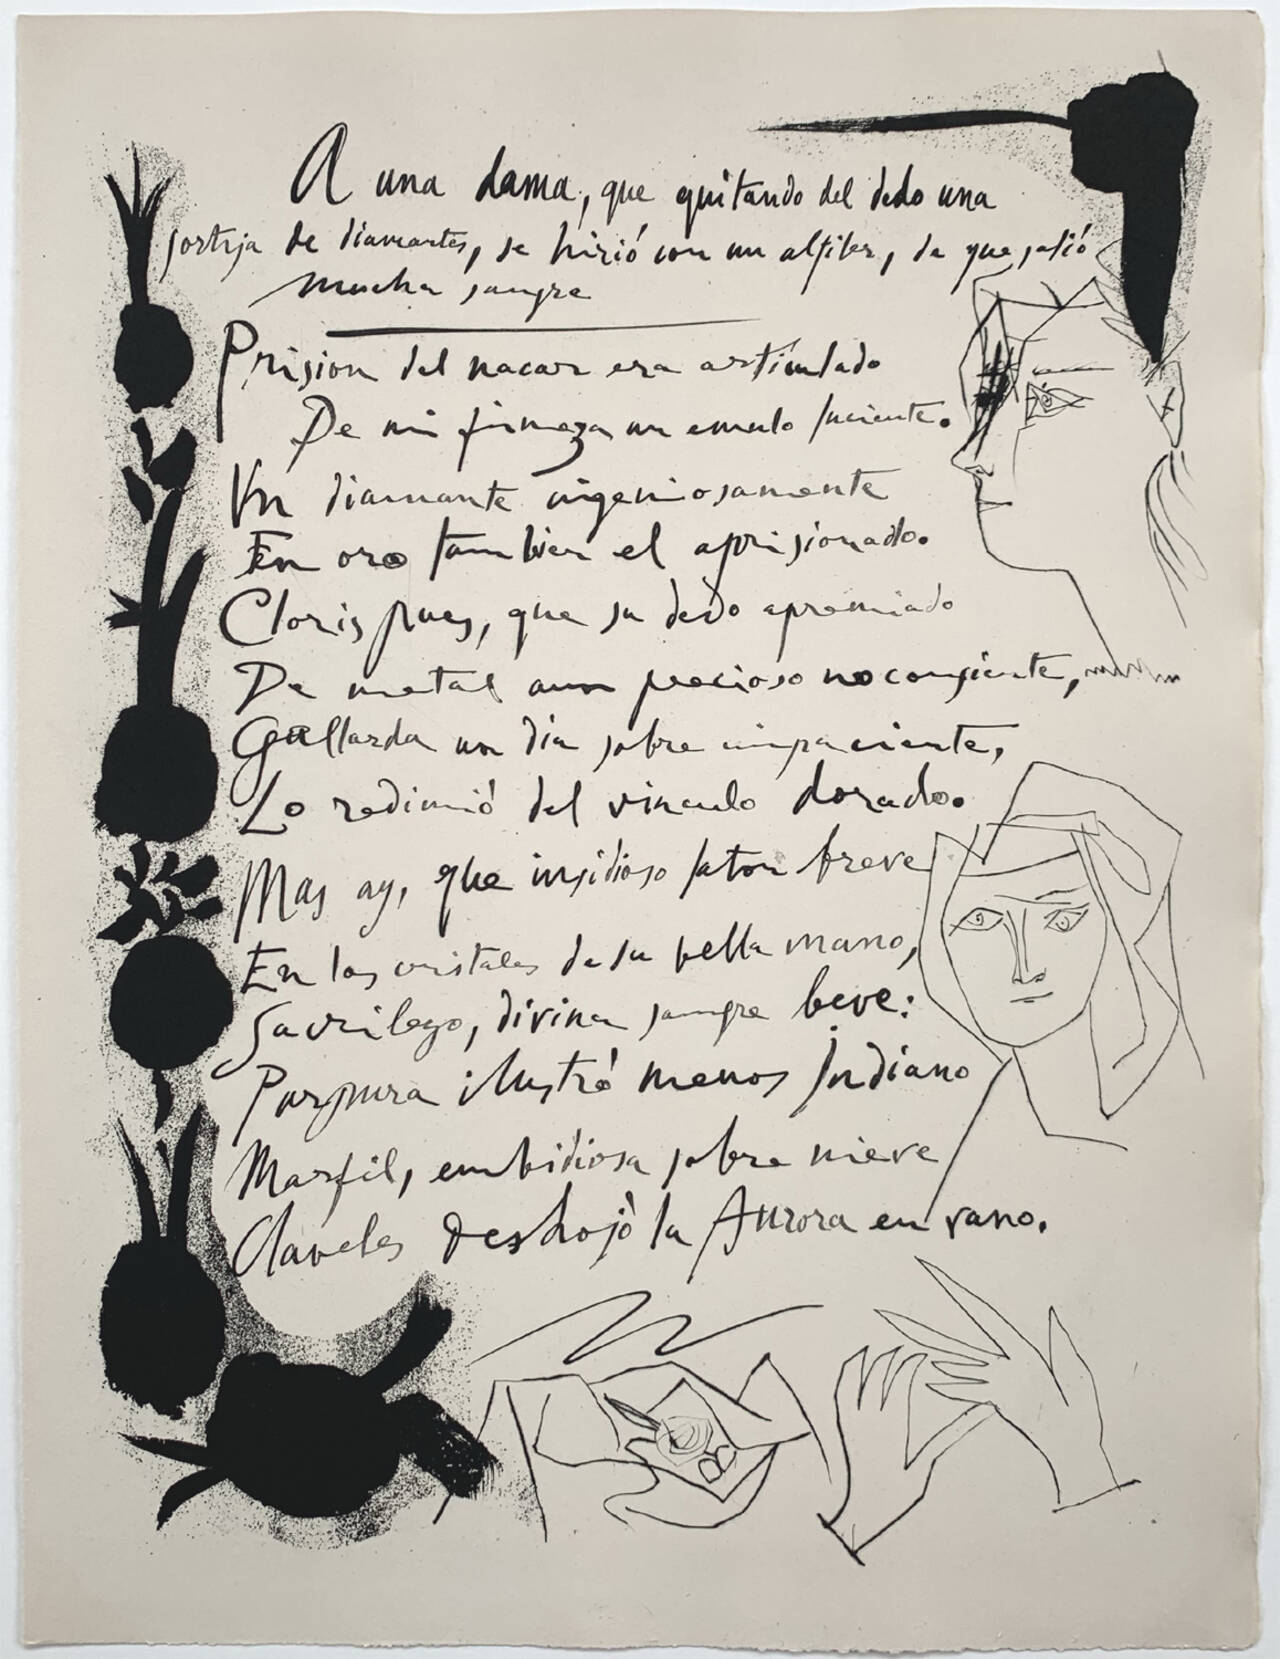 A una dama, que quitando del dedo una
sortija de diamantes, se hirió con un alfiler, de que salió
mucha sangre
Prision del nacar era articulado
De mi firmeza un emulo luciente.
Un diamante ingeniosamente
En oro tambien el aprisionado.
Cloris pues, que su dedo apremiado
De metal aun precioso no consiente,
Gallarda un dia sobre impaciente,
Lo redimió del vinculo dorado.
Mas ay, que insidioso laton breve
En los cristales de su bella mano,
Sacrilego, divina sangre beve:
Purpura ilustró menos Indiano
Marfil, embidiosa sobre nieve
Claveles deshojò la Aurora en vano.